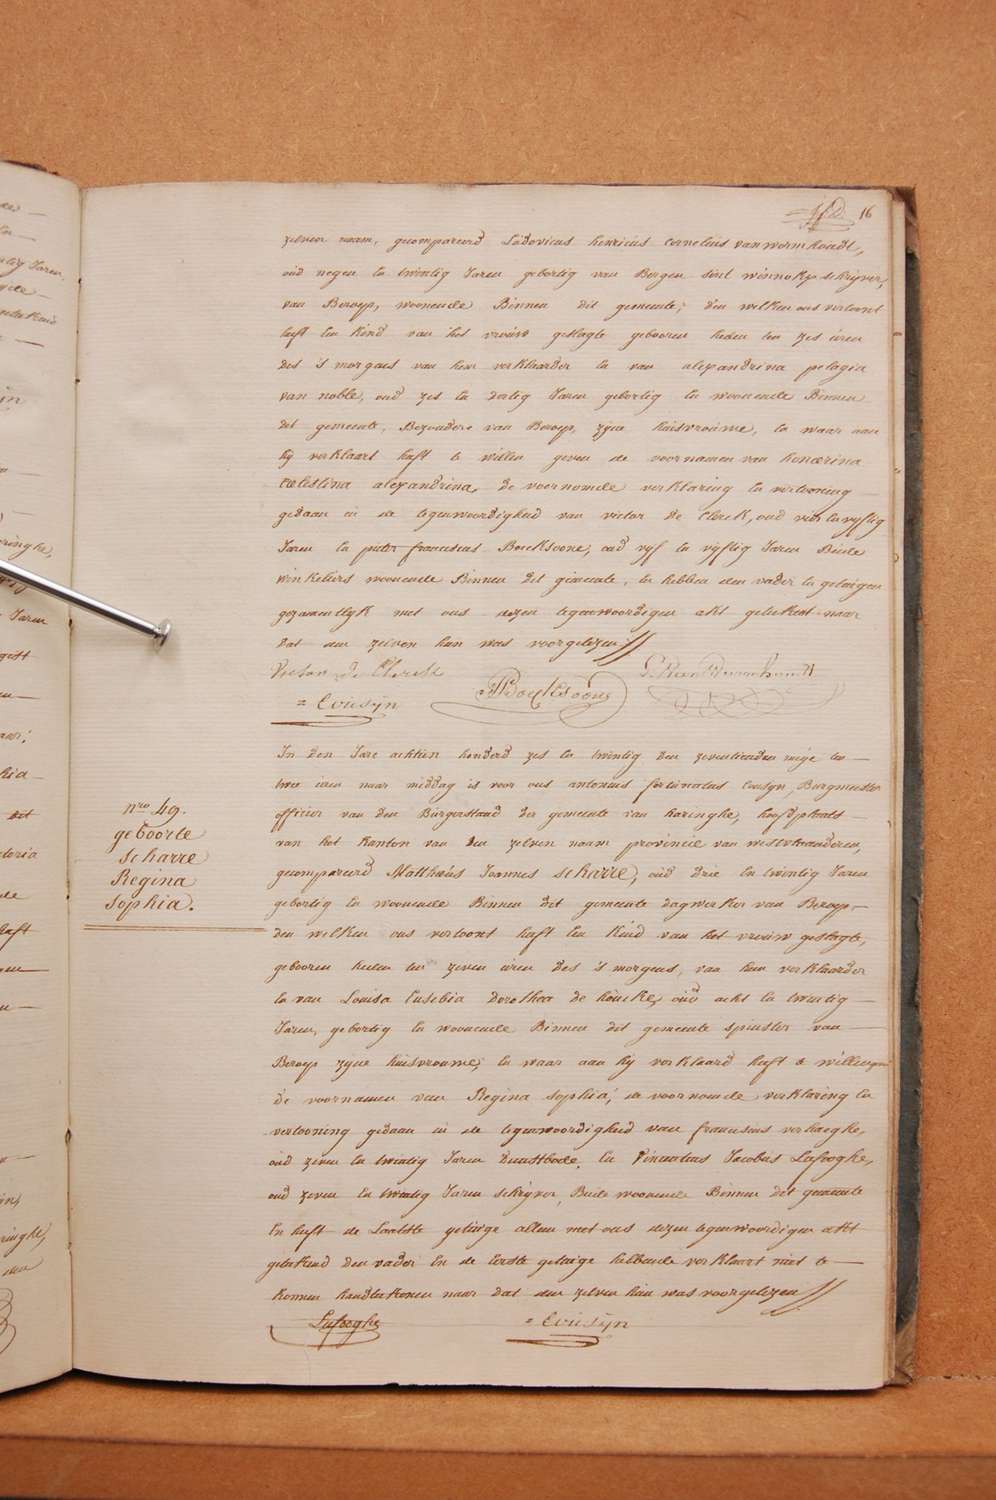 16
zelven naam, gecompareerd Lodovicus henricus Cornelius van wormhoudt,
oud negen en twintig Jaren gebortig van Bergen sint winnokx schrijver,
van Beroep, woonende Binnen dit gemeente, den welken ons vertoont
heeft een kind van het vrouw geslagte gebooren heden ten zes uren
des 's morgens van hem verklaarder en van alexandrina pelagia
van noble, oud zes en dertig Jaren gebortig en woonende Binnen
dit gemeente, Bezondere van Beroep, zyne huisvrouwe, en waar aan
hy verklaart heeft te willen geven de voornamen van honorina
Celestina alexandrina, de voornoemde verklaring en vertooning
gedaan in de tegenwoordigheid van victor de Clerck, oud vier en vyftig
Jaren en pieter franciscus Boeksoone, oud vyf en vyftig Jaren Beide
winkeliers woonende Binnen dit gemeente, en hebben den vader en getuigen
gezamentlyk met ons dezen tegenwoordigen akt geteekent naar
dat den zelven hun was voorgelezen
Victor De Clerck
Cousyn
nro 49.
geboorte
scharre
Regina
sophia.
In den Jare achtien honderd zes en twintig den zeventienden meye ten
twee uren naar middag is voor ons antonius fortunatus Cousyn, Burgmeester
officier van den Burgerstand der gemeente van haringhe, hoofdplaats
van het kanton van den zelven naam provincie van westvlaanderen,
gecompareerd Mattheus Joannes scharre, oud drie en twintig Jaren
gebortig en woonende Binnen dit gemeente dagwerker van Beroep
den welken ons vertoont heeft een kind van het vrouw geslagte,
gebooren heden ten zeven uren des 's morgens, van hem verklaarder
en van Louisa Eusebia Dorothea de houcke, oud acht en twintig
Jaren, gebortig en woonende Binnen dit gemeente spinster van
Beroep zyne huisvrouwe, en waar aan hy verklaard heeft te willen
de voornamen van Regina sophia, de voornoemde verklaring en
vertooning gedaan in de tegenwoordigheid van franciscus verhaeghe,
oud zeven en twintig Jaren Dienstbode, en Vincentius Jacobus Lafooghe,
oud zeven en twintig Jaren schryver, Beide woonende Binnen dit gemeente
en heeft de Laatste getuige alleen met ons dezen tegenwoordigen akt
geteekend den vader en de eerste getuige hebbende verklaart niet te
konnen handtekenen naar dat den zelven hun was voorgelezen
Lafooghe
Cousyn